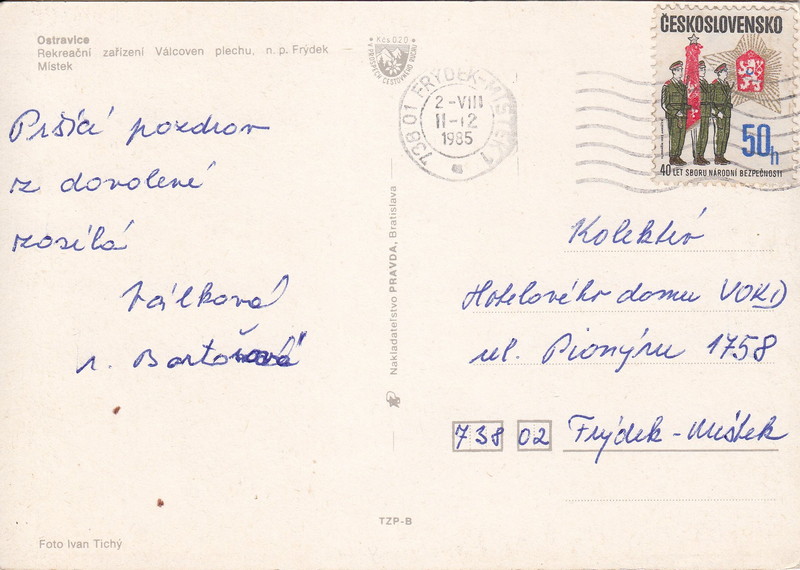 Ostravice
Rekreační zařízení Válcoven plechu, n. p. Frýdek –
Místek
Kčs 0.20
738 01 FRÝDEK-MÍSTEK 1
2-VIII
11-12
1985
ČESKOSLOVENSKO
50h
40 LET SBORU NÁRODNÍ BEZPEČNOSTI
Pršící pozdrav
z dovolené
zasílá
Válková
r. Bartošová
Nakladatelství PRAVDA, Bratislava
Kolektiv
Hotelového domu VOKD
ul. Pionýru 1758
738 02 Frýdek-Místek
TZP-B
Foto Ivan Tichý